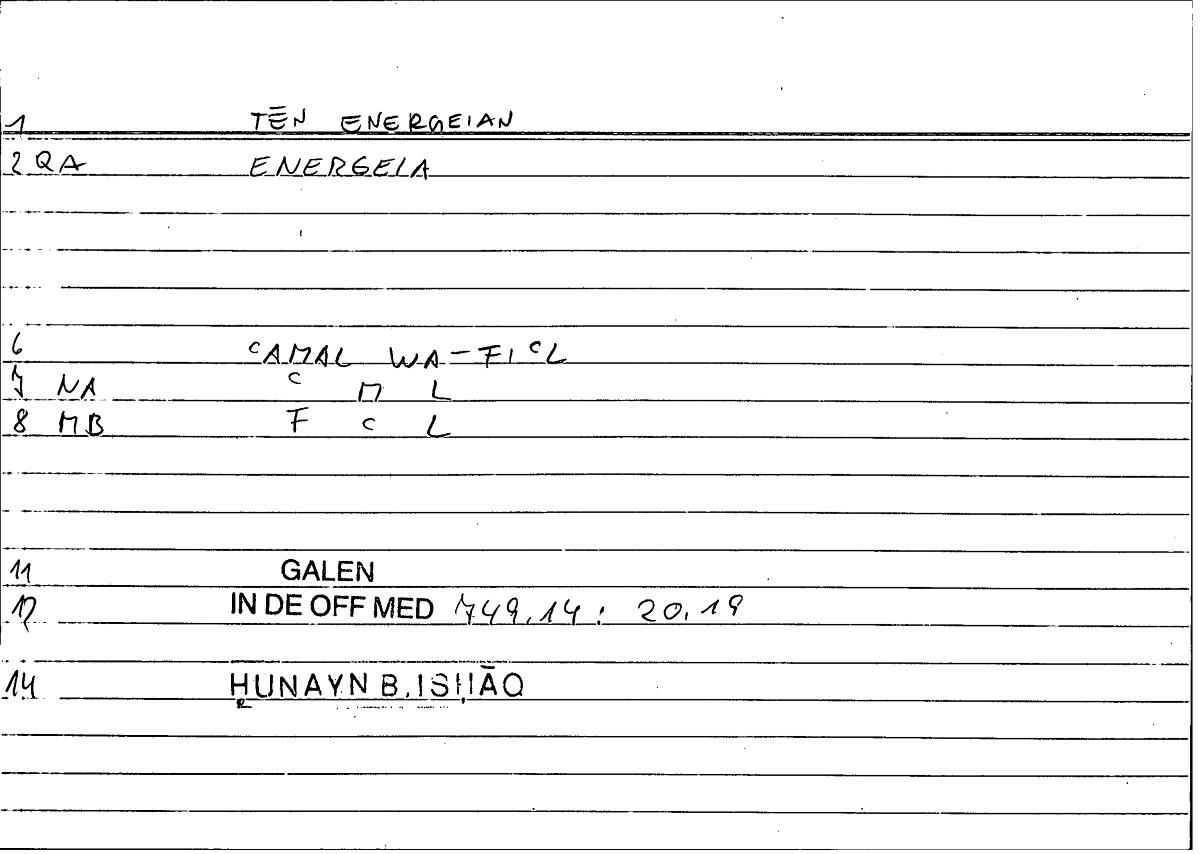 1 TĒN ENERGEIAN
2 QA ENERGEIA
6 ᶜAMAL WA-FIᶜL
7 NA ᶜ M L
8 MB F ᶜ L
11 GALEN
12 IN DE OFF MED 749,14: 20,19
14 ḤUNAYN B. ISḤĀQ